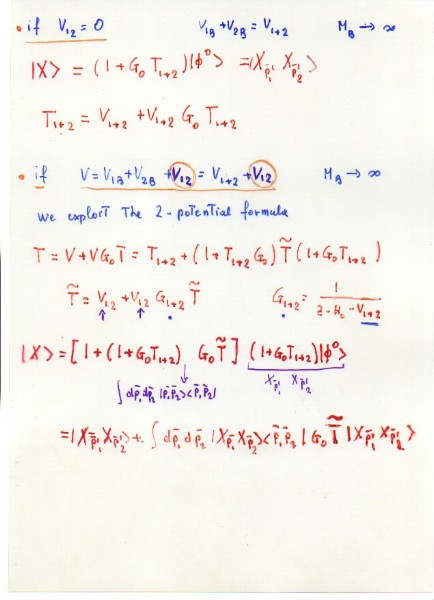 • if V₁₂ = 0 V₁B + V₂B = V₁₊₂ M_B → ∞
|X⟩ = (1 + G₀ T₁₊₂)|ϕ⁰⟩ = |X_p̄₁' X_p̄₂'⟩
T₁₊₂ = V₁₊₂ + V₁₊₂ G₀ T₁₊₂
• if V = V₁B + V₂B + V₁₂ = V₁₊₂ + V₁₂ M_B → ∞
we exploit The 2-potential formula
T = V + V G₀ T = T₁₊₂ + (1 + T₁₊₂ G₀) T̃ (1 + G₀ T₁₊₂)
T̃ = V₁₂ + V₁₂ G₁₊₂ T̃ G₁₊₂ = 1 / (z - H₀ - V₁₊₂)
|X⟩ = [1 + (1 + G₀ T₁₊₂) G₀ T̃] (1 + G₀ T₁₊₂)|ϕ⁰⟩
∫ dp̄₁ dp̄₂ |p̄₁ p̄₂⟩⟨p̄₁ p̄₂| X_p̄₁' X_p̄₂'
= |X_p̄₁' X_p̄₂'⟩ + ∫ dp̄₁ dp̄₂ |X_p̄₁ X_p̄₂⟩⟨p̄₁ p̄₂| G₀ T̃ |X_p̄₁' X_p̄₂'⟩